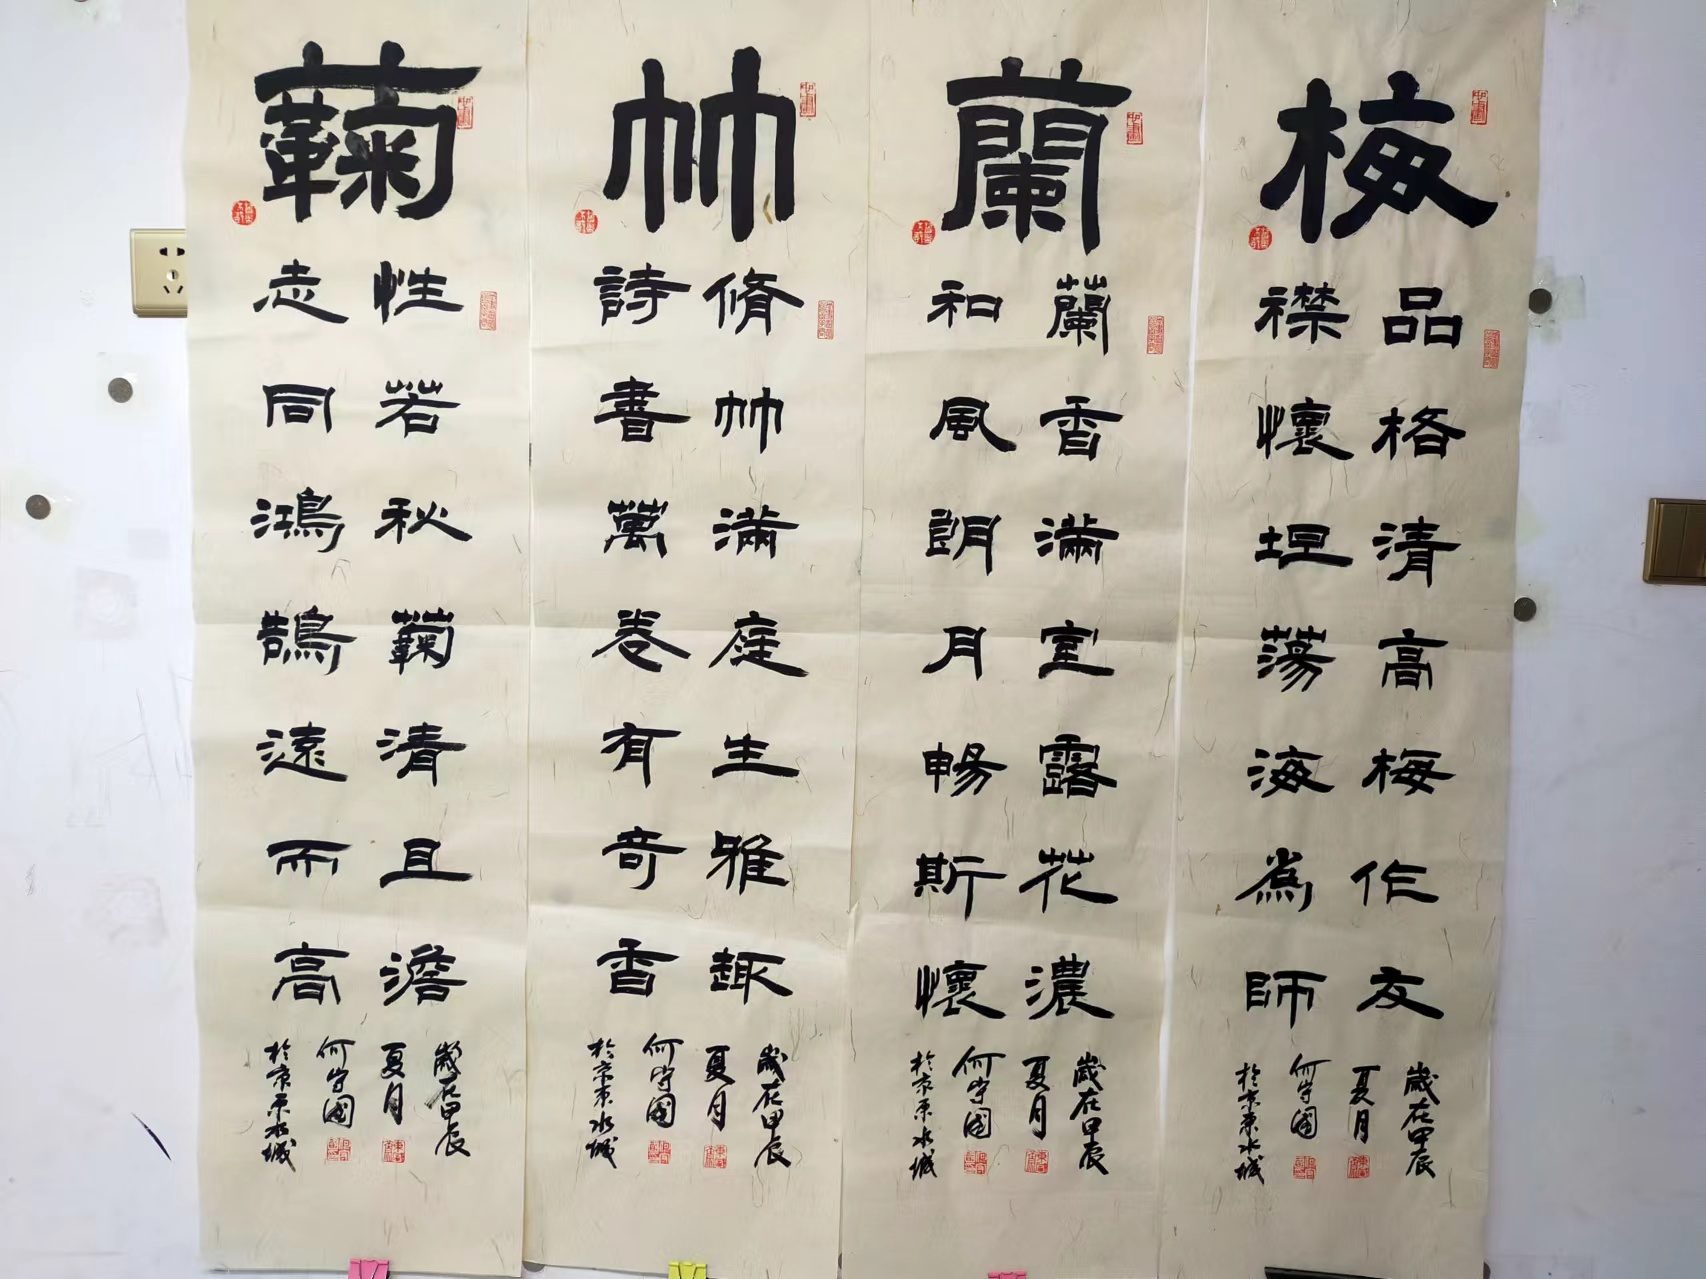 梅
品格清高梅作友
襟懷坦蕩海爲師
歲在甲辰
夏月
何守國
於京東水城
蘭
蘭香滿室露花濃
和風朗月暢斯懷
歲在甲辰
夏月
何守國
於京東水城
竹
脩竹滿庭生雅趣
詩書萬卷有奇香
歲在甲辰
夏月
何守國
於京東水城
蘜
性若秋蘜清且澹
志同鴻鵠遠而高
歲在甲辰
夏月
何守國
於京東水城